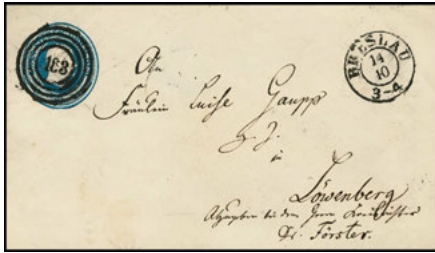 183
BRESLAU
14
10
3-4
An
Fräulein Luise Gaupp
z. Z.
in
Löwenberg
Abzugeben bei dem Herrn Kreisrichter
Dr. Förster.